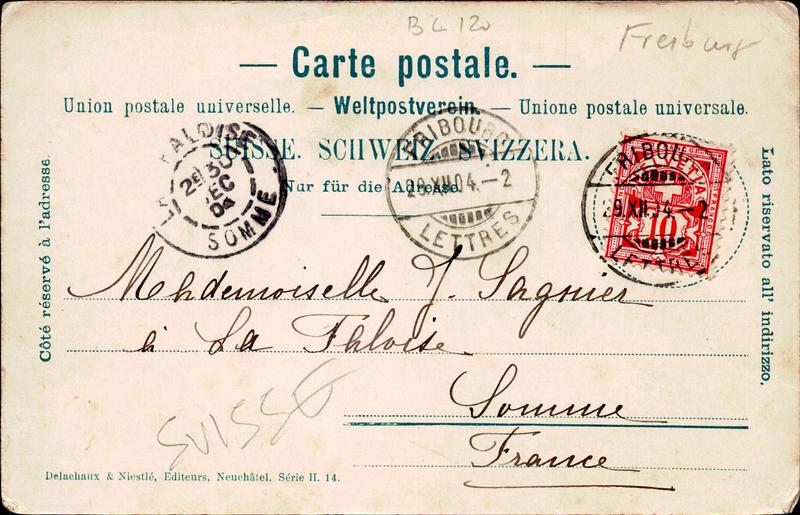 BL 120
Freiburg
— Carte postale. —
Union postale universelle. — Weltpostverein. — Unione postale universale.
SUISSE. SCHWEIZ. SVIZZERA.
Nur für die Adresse.
Côté réservé à l'adresse.
Lato riservato all' indirizzo.
LA FALOISE
31
DEC
04
SOMME
FRIBOURG
29.XII.04.-2
LETTRES
FRIBOU
29.XII.04.-2
10
Mademoiselle J. Sagnier
à La Faloise
Somme
France
SUISSE
Delachaux & Niestlé, Editeurs, Neuchâtel. Série H. 14.